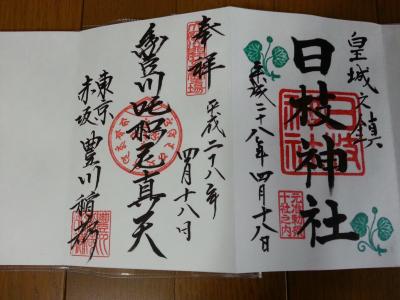 皇城之鎮
日枝神社
平成二十八年四月十八日
元准勅祭
十社之内
奉拝
平成二十八年
四月十八日
豊川吒枳尼真天
東京
赤坂
豊川稲荷